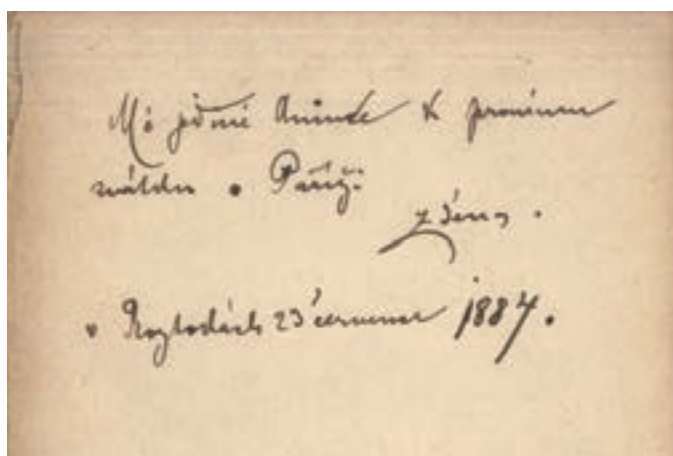 Mé jediné Anince k prvnímu
svátku v Paříži
Zdenq.
v Roztokách 23 července 1884.